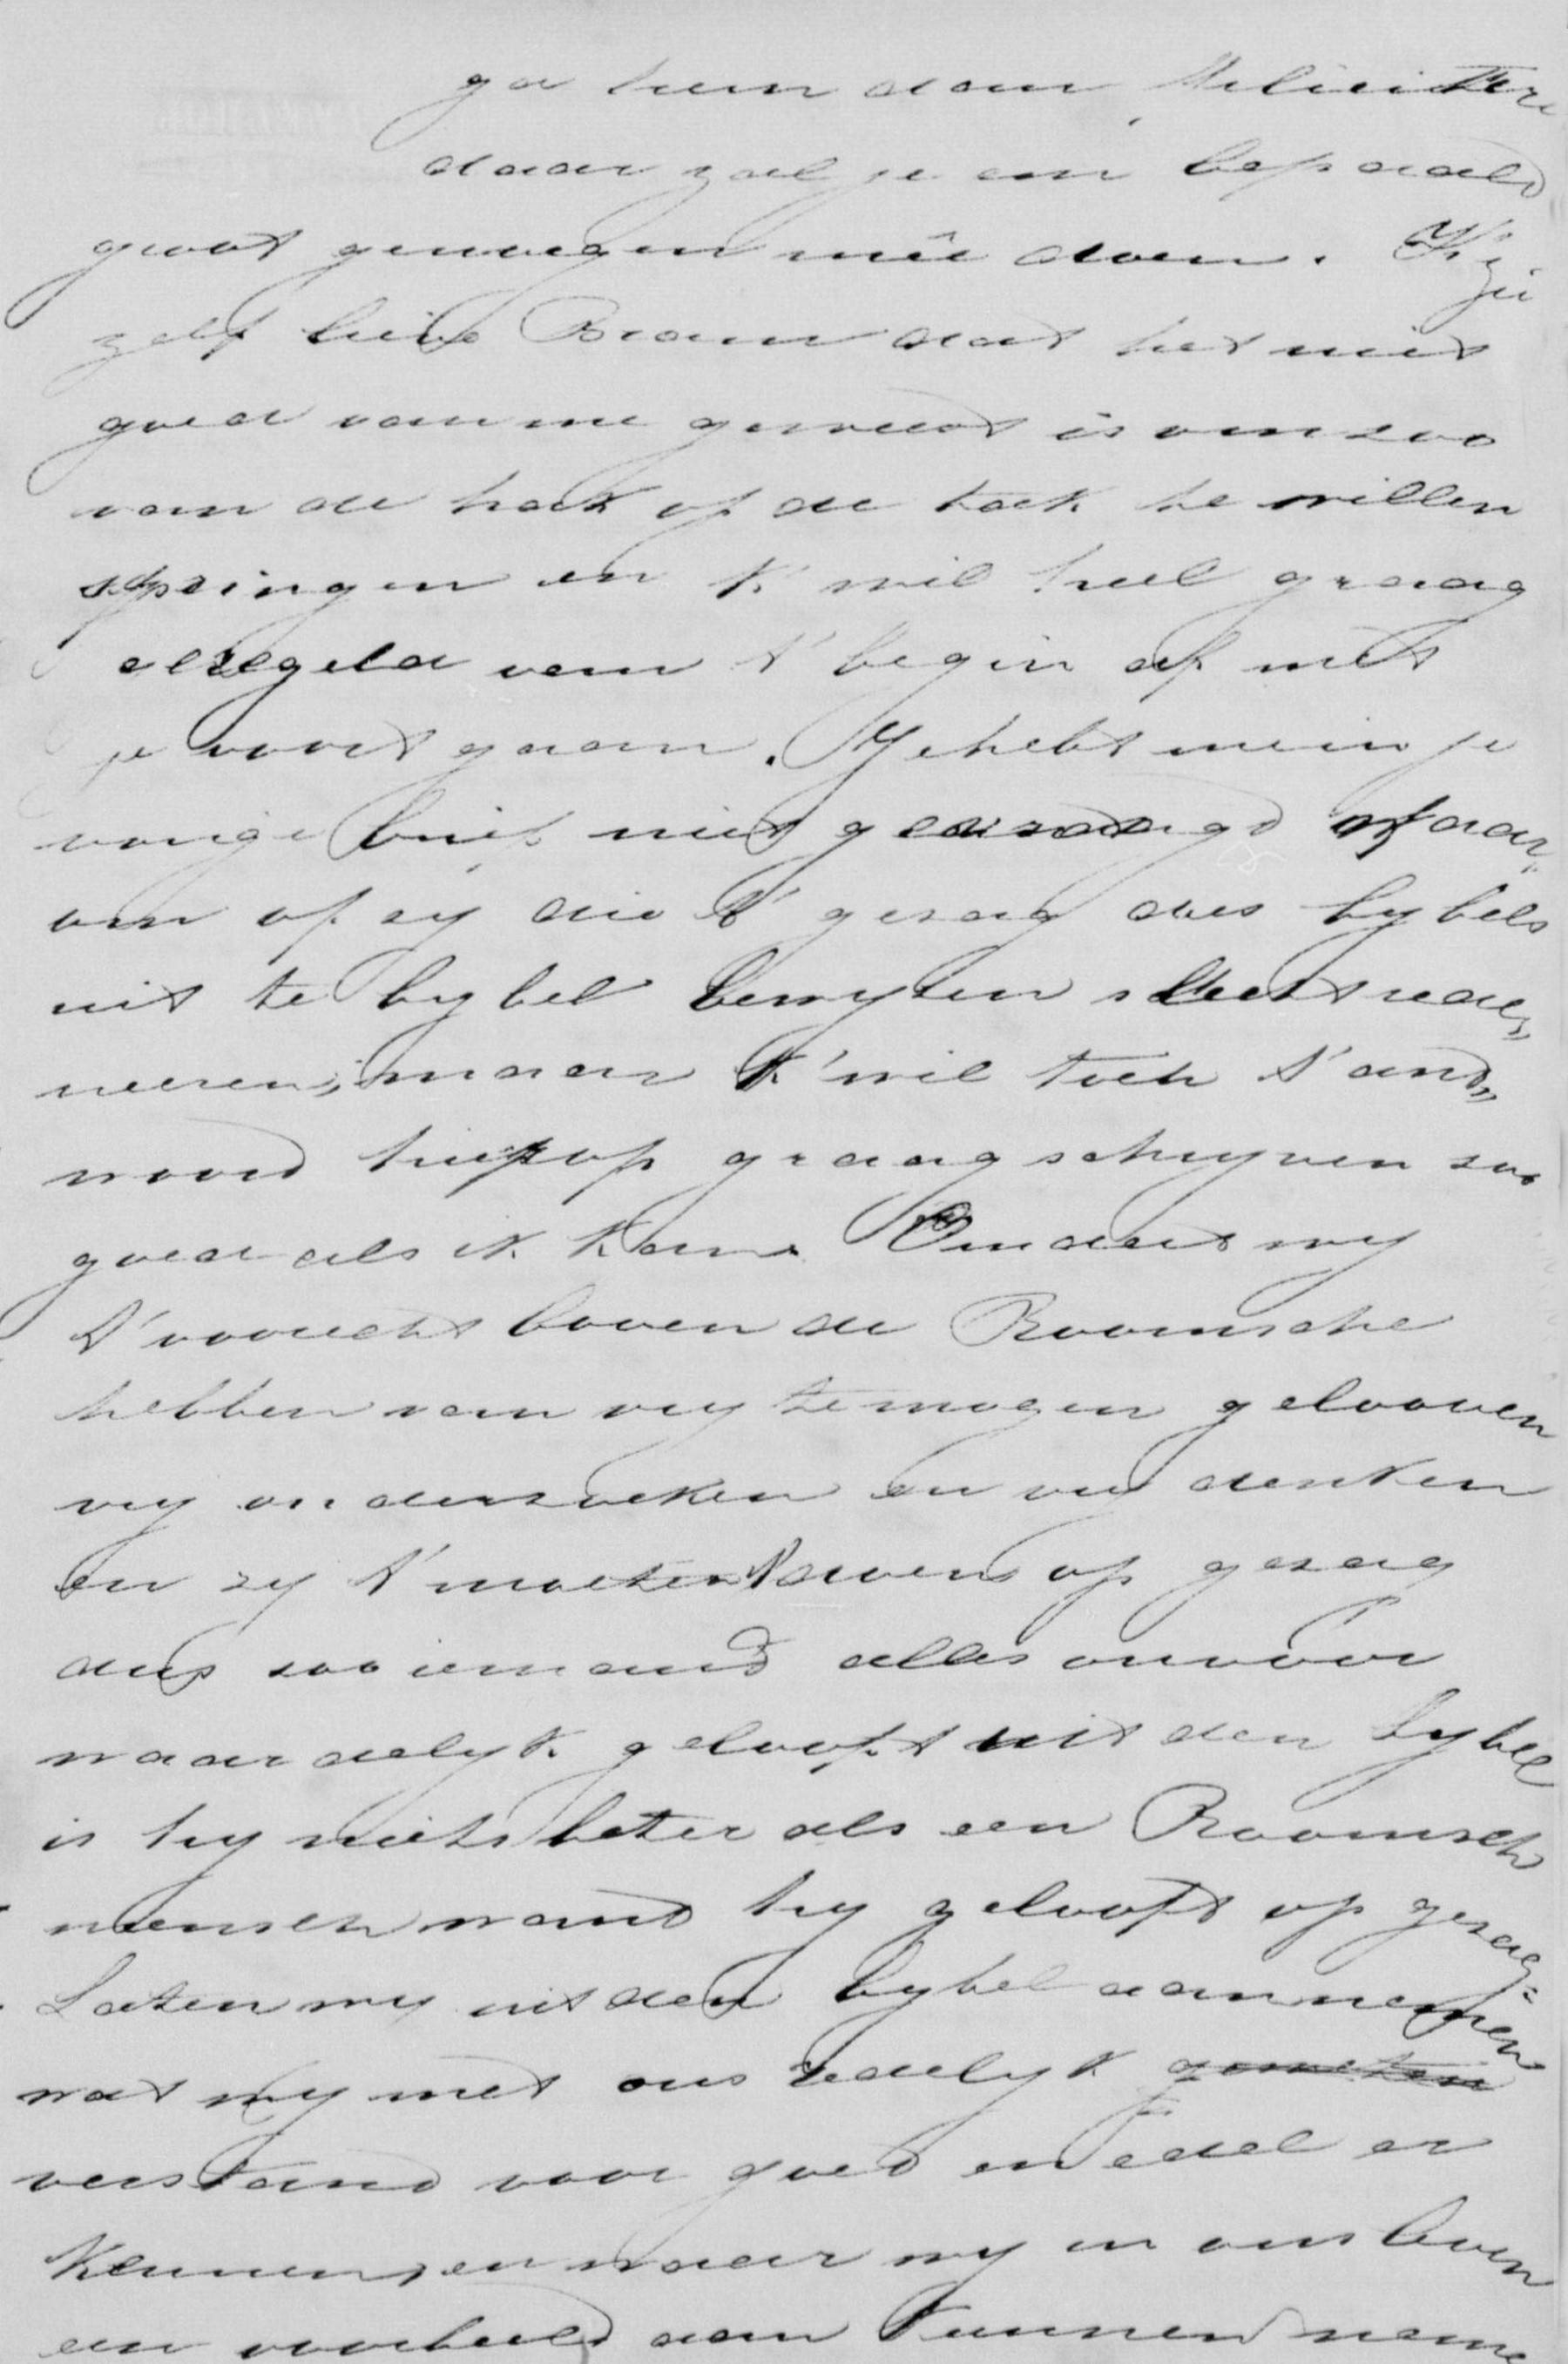 ga hem dan feliciteren
daar zal je em bepaald
groot genoegen meê doen. K'zie
zelf lieve Bram dat het niet
goed van me geweest is om zoo
van de hak op de tak te willen
springen en k' wil heel graag
geregeld van t' begin af met
je voort gaan. Je hebt me in je
vorige brief niet gevraagd waar„
om of zy die t' gezag des bybels
uit te bybel bewyzen slecht rede„
neeren; maar k' wil toch t' and„
woord hierop graag schryven zoo
goed als ik kan. Omdat wy
t' voorrecht boven de Roomsche
hebben van vry te mogen gelooven
vry onderzoeken en vry denken
en zy t' moeten doen op gezag
dus zoo iemand alles onvoor
waardelyk gelooft uit den bybel
is hy niets beter als een Roomsch
mensch wand hy gelooft op gezag.
Laten wy uit den bybel aannemen
wat wy met ons redelyk
verstand voor goed en edel er
kennen, en waar wy in ons leven
een voorbeeld aan kunnen neme